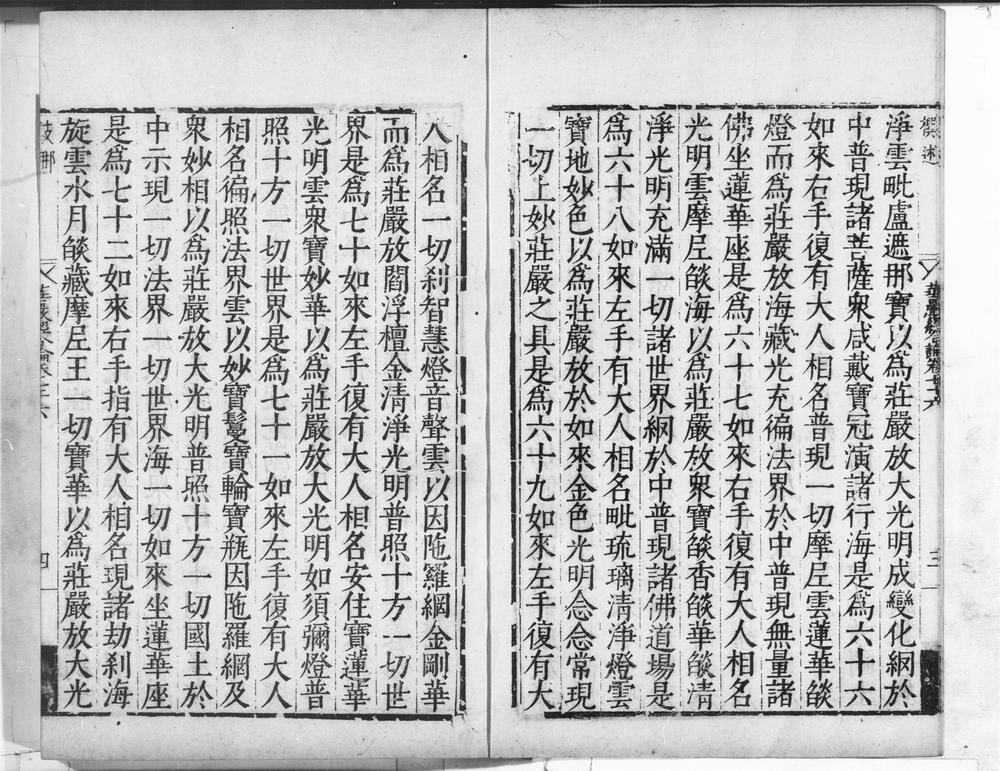 淨雲毗盧遮那寶以爲莊嚴放大光明成變化網於
中普現諸菩薩衆咸戴寶冠演諸行海是爲六十六
如來右手復有大人相名普現一切摩尼雲蓮華燄
燈而爲莊嚴放海藏光充徧法界於中普現無量諸
佛坐蓮華座是爲六十七如來右手復有大人相名
光明雲摩尼燄海以爲莊嚴放衆寶燄香燄華燄清
淨光明充滿一切諸世界網於中普現諸佛道場是
爲六十八如來左手有大人相名毗琉璃清淨燈雲
寶地妙色以爲莊嚴放於如來金色光明念念常現
一切上妙莊嚴之具是爲六十九如來左手復有大
三
人相名一切剎智慧燈音聲雲以因陁羅網金剛華
而爲莊嚴放閻浮檀金清淨光明普照十方一切世
界是爲七十如來左手復有大人相名安住寶蓮華
光明雲衆寶妙華以爲莊嚴放大光明如須彌燈普
照十方一切世界是爲七十一如來左手復有大人
相名徧照法界雲以妙寶鬘寶輪寶瓶因陁羅網及
衆妙相以爲莊嚴放大光明普照十方一切國土於
中示現一切法界一切世界海一切如來坐蓮華座
是爲七十二如來右手指有大人相名現諸劫剎海
旋雲水月燄藏摩尼王一切寶華以爲莊嚴放大光
四